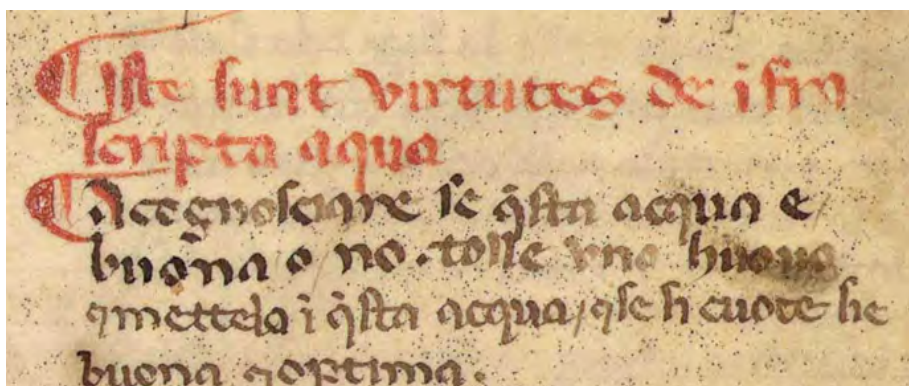 ¶ iste sunt virtutes de i sfra
scripta aqua
¶ A cegnosciare se q̃sta acqua e
buona o no. tolle uno huouo
⁊mettelo ĩ q̃sta acqua, ⁊se si cuoce he
buona ⁊optima.